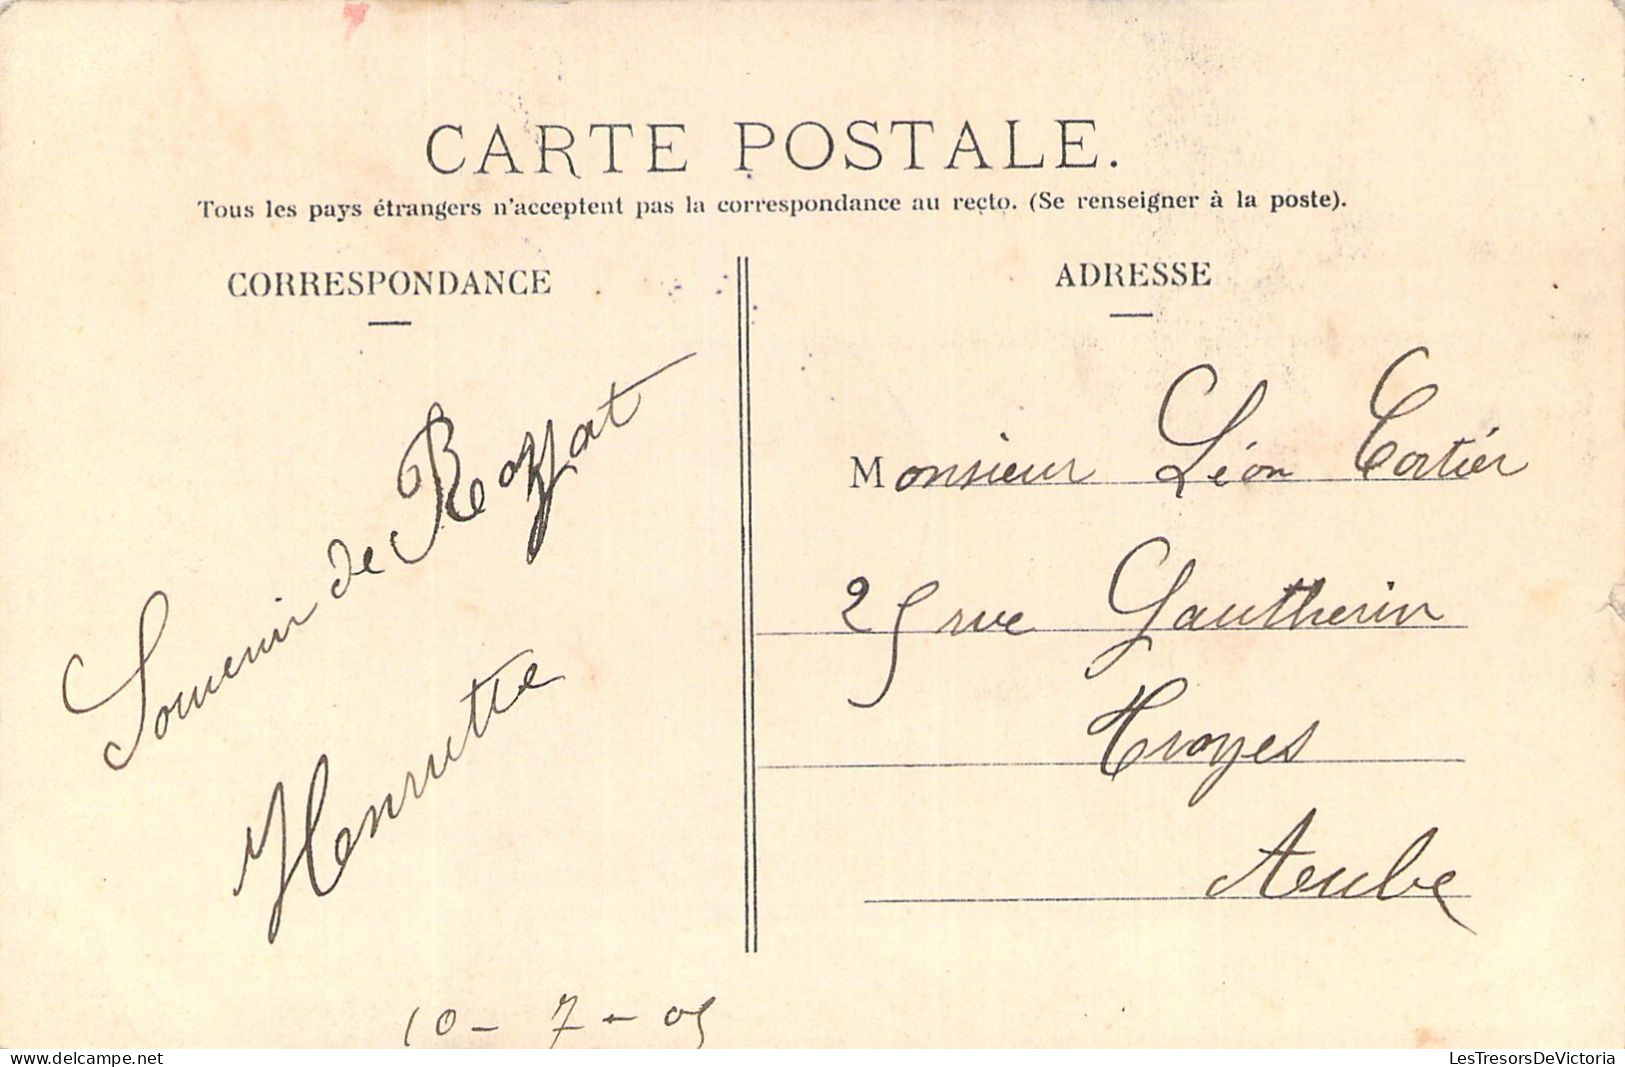 CARTE POSTALE.
Tous les pays étrangers n'acceptent pas la correspondance au recto. (Se renseigner à la poste).
CORRESPONDANCE
Souvenir de
Henriette
10 - 7 - 05
ADRESSE
Monsieur Léon Tortier
25 rue Gautherin
Troyes
Aube
LesTresorsDeVictoria